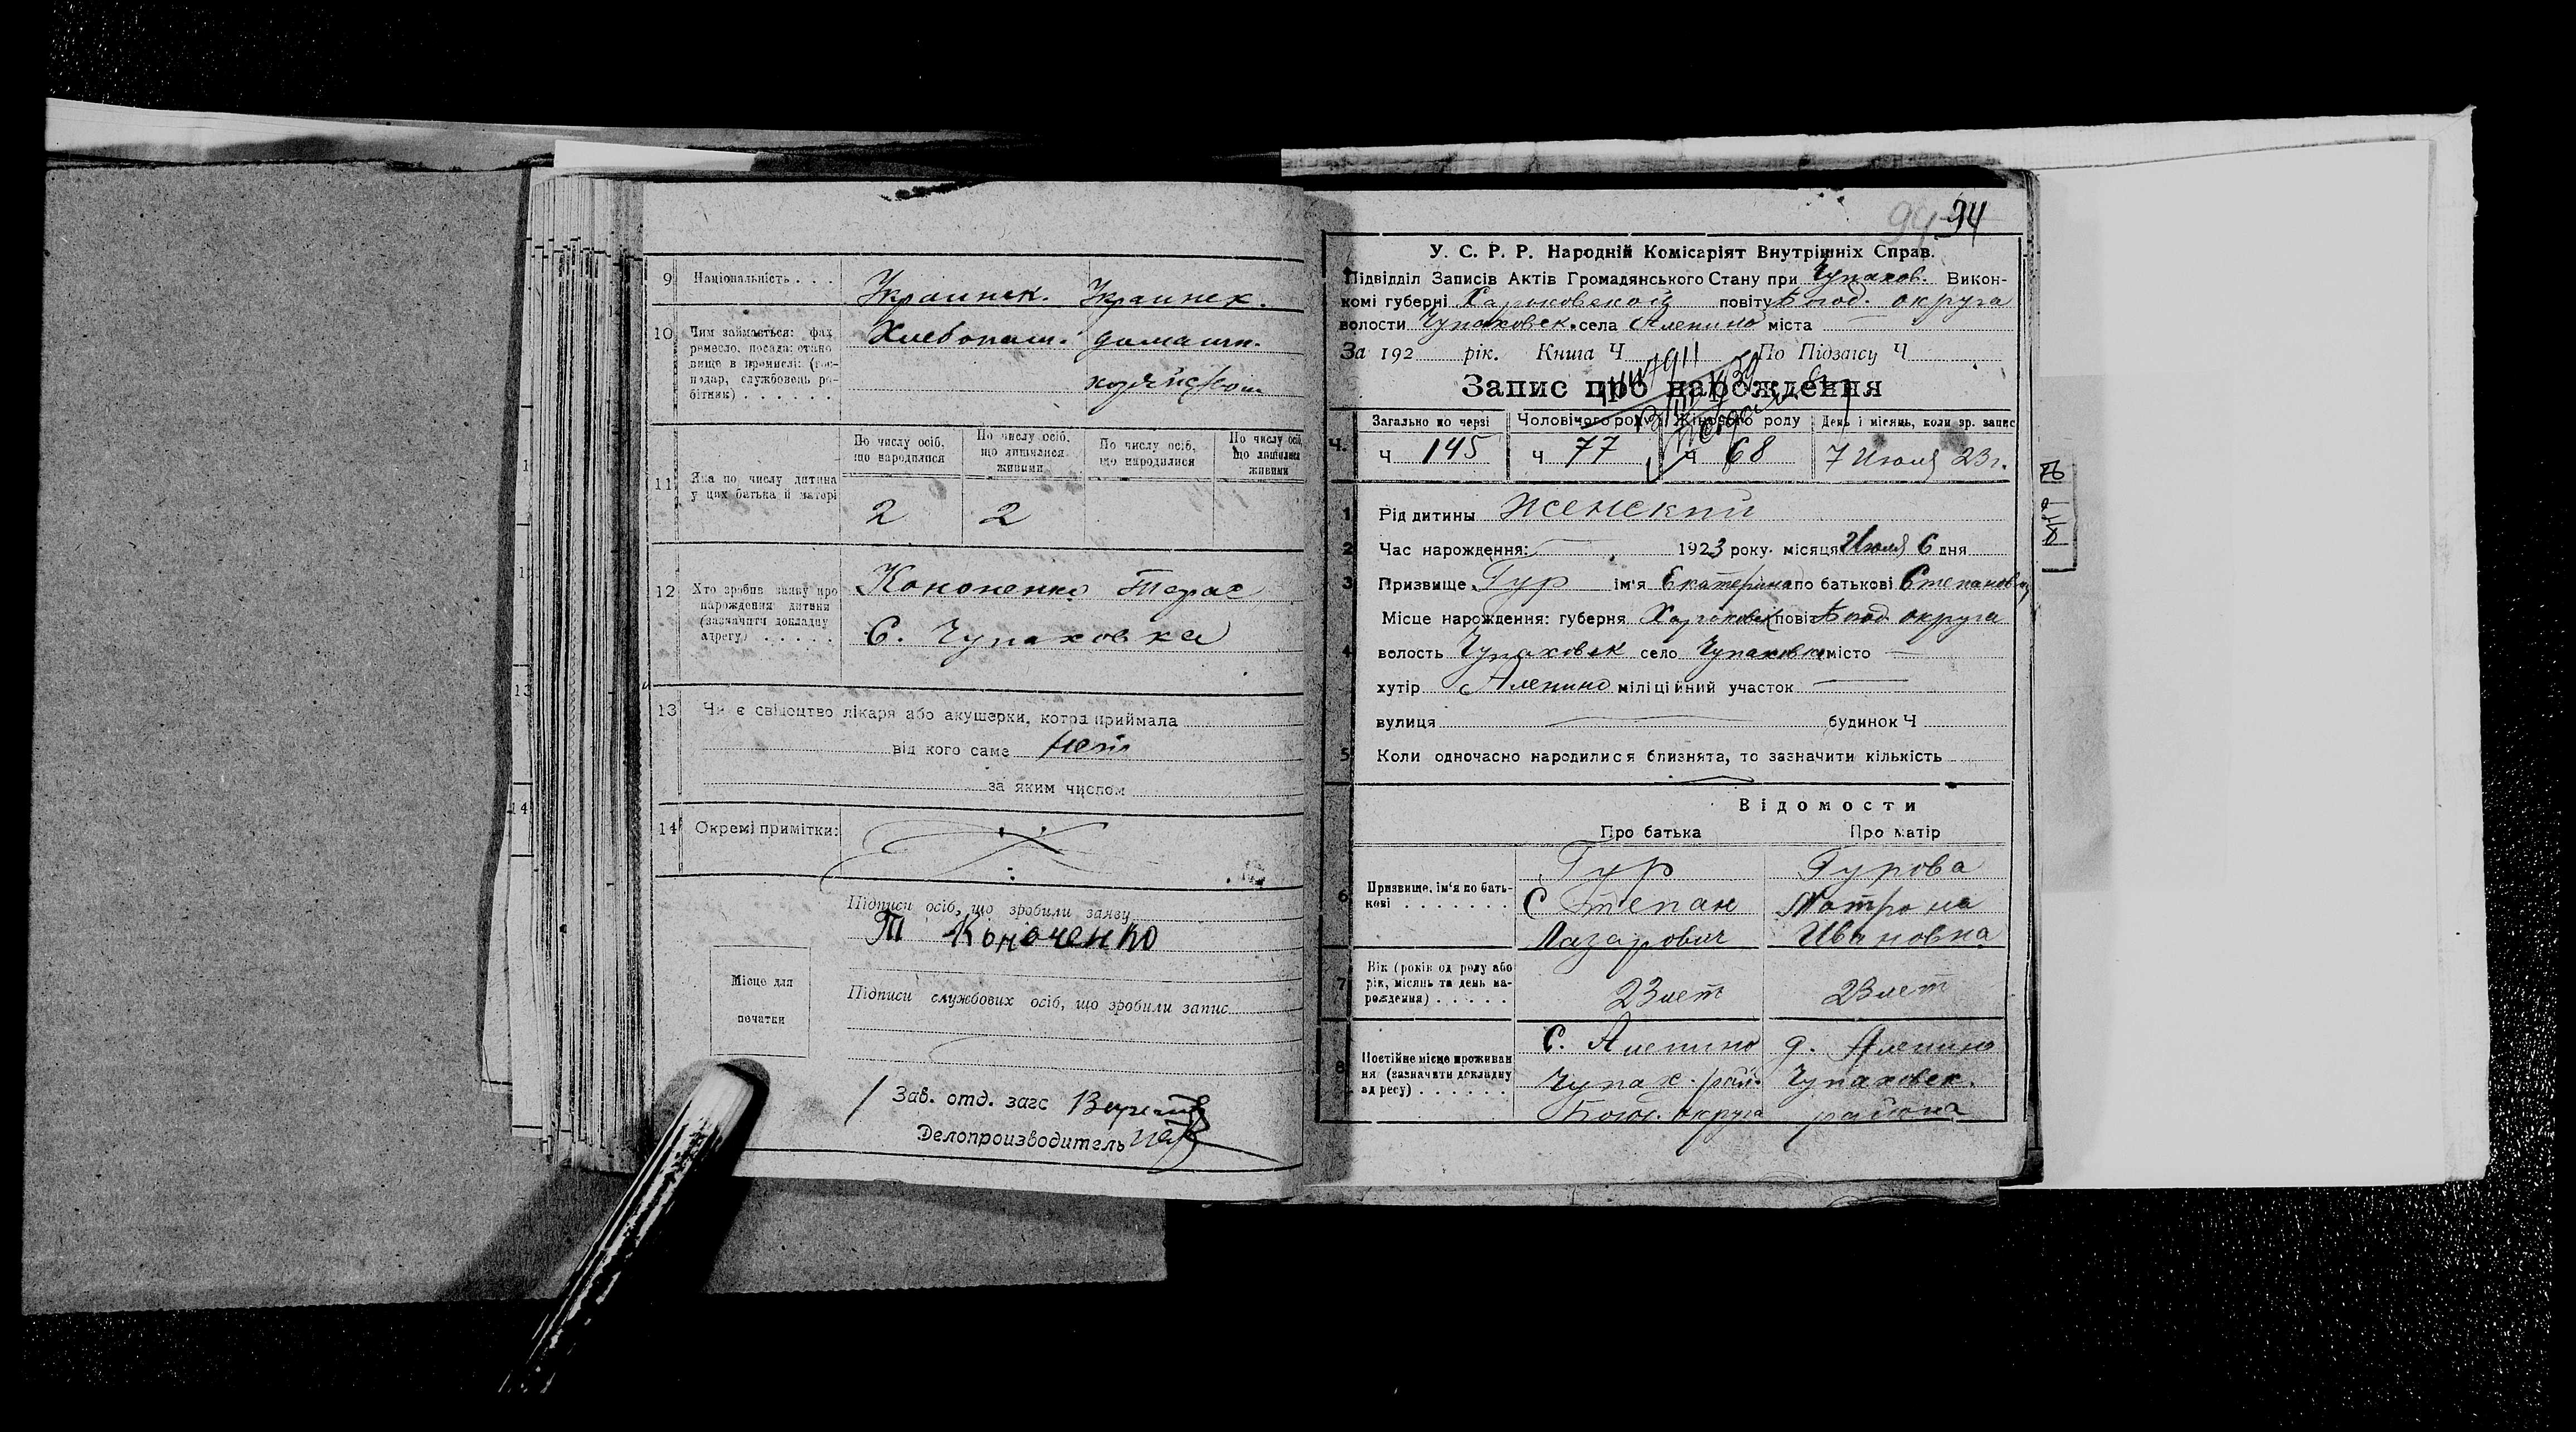 9 Національність . . . Украинск. Украинск.
10 Чим займається: фах
ремесло, посада: стано
вище в промислі: (гос-
подар, службовець ро-
бітник) . . . . . .
Хлебопаш. домашн.
хозяйством
11 Яка по числу дитина
у цих батька й матері
По числу осіб,
що народилися
По числу осіб,
що лишилися
живими
По числу осіб,
що народилися
По числу осіб,
що лишилися
живими
2 2
12 Хто зробив заяву про
нарождення дитини
(зазначити докладну
адресу) . . . . .
Кононенко Тарас
С. Чупаховка
13 Чи є свідоцтво лікаря або акушерки, котра приймала
від кого саме нет
за яким числом
14 Окремі примітки:
Підписи осіб, що зробили заяву
Т Кононенко
Місце для
печатки
Підписи службових осіб, що зробили запис
Зав. отд. загс
Делопроизводитель
94 94
У. С. Р. Р. Народній Комісаріят Внутрішніх Справ.
Підвідділ Записів Актів Громадянського Стану при Чупахов. Викон-
комі губерні Харьковской повіту Богод. округа
волости Чупаховск. села Аленино міста
За 192 рік. Книга Ч По Підзагсу Ч
Запис про нарождення
Ч. Загально по черзі Чоловічого роду Жіночого роду День і місяць, коли зр. запис
Ч 145 Ч 77 Ч 68 7 Июля 23 г.
1 Рід дитини Женский
2 Час нарождення: 1923 року. місяця Июля 6 дня
3 Призвище Гур ім'я Екатерина по батькові Степановна
Місце нарождення: губерня Харьковск повіт Богод. округа
4 волость Чупаховск село Чупаховка місто
хутір с Аленино міліційний участок
вулиця будинок Ч
5 Коли одночасно народилися близнята, то зазначити кількість
Відомости
Про батька Про матір
6 Призвище, ім'я по бать-
кові . . . . . . .
Гур Гурова
Степан Матрона
Лазарович Ивановна
7 Вік (років од роду або
рік, місяць та день на-
рождення) . . . . .
23 лет 23 лет
8 Постійне місце проживан
ня (зазначити докладну
адресу) . . . . . .
С. Аленино д. Аленино
Чупах. рай. Чупаховск.
Богод. округа района